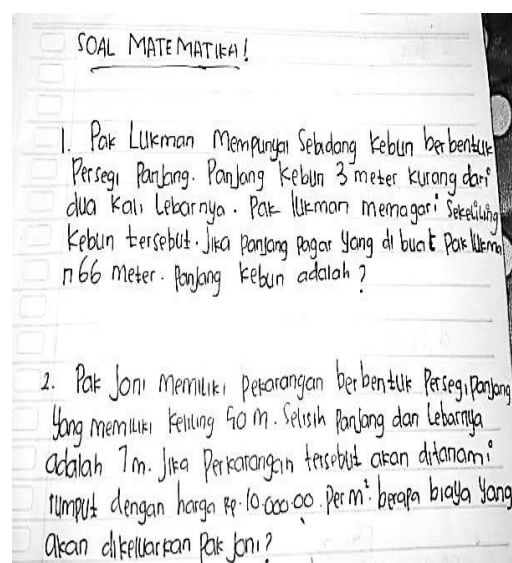 SOAL MATEMATIKA!
1. Pak Lukman Mempunyai Sebidang Kebun berbentuk
Persegi Panjang. Panjang Kebun 3 meter kurang dari
dua Kali Lebarnya. Pak lukman memagari Sekeliling
Kebun tersebut. Jika panjang pagar yang di buat Pak lukma
n 66 Meter. Panjang Kebun adalah?
2. Pak Joni Memiliki Pekarangan berbentuk Persegi Panjang
Yang memiliki Keliling 50 m. Selisih Panjang dan Lebarnya
adalah 7m. Jika Perkarangan tersebut akan ditanami
rumput dengan harga Rp. 10.000.00. Per m². berapa biaya Yang
akan dikelluarkan Pak Joni?